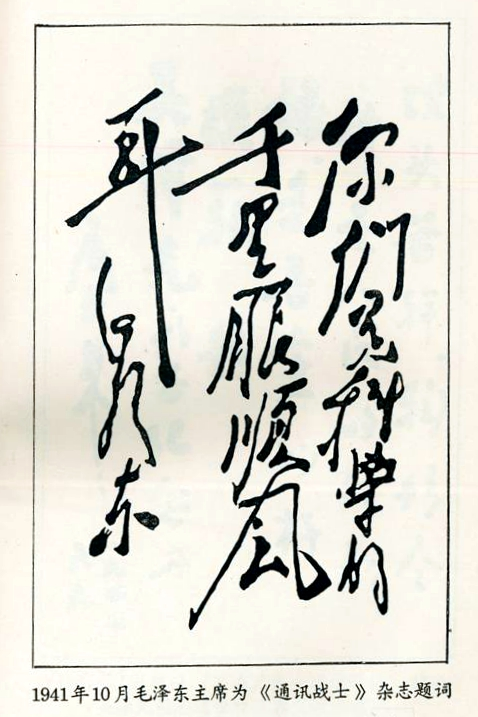 你们是科学的
千里眼順风
耳
毛泽东
1941年10月毛泽东主席为《通讯战士》杂志题词